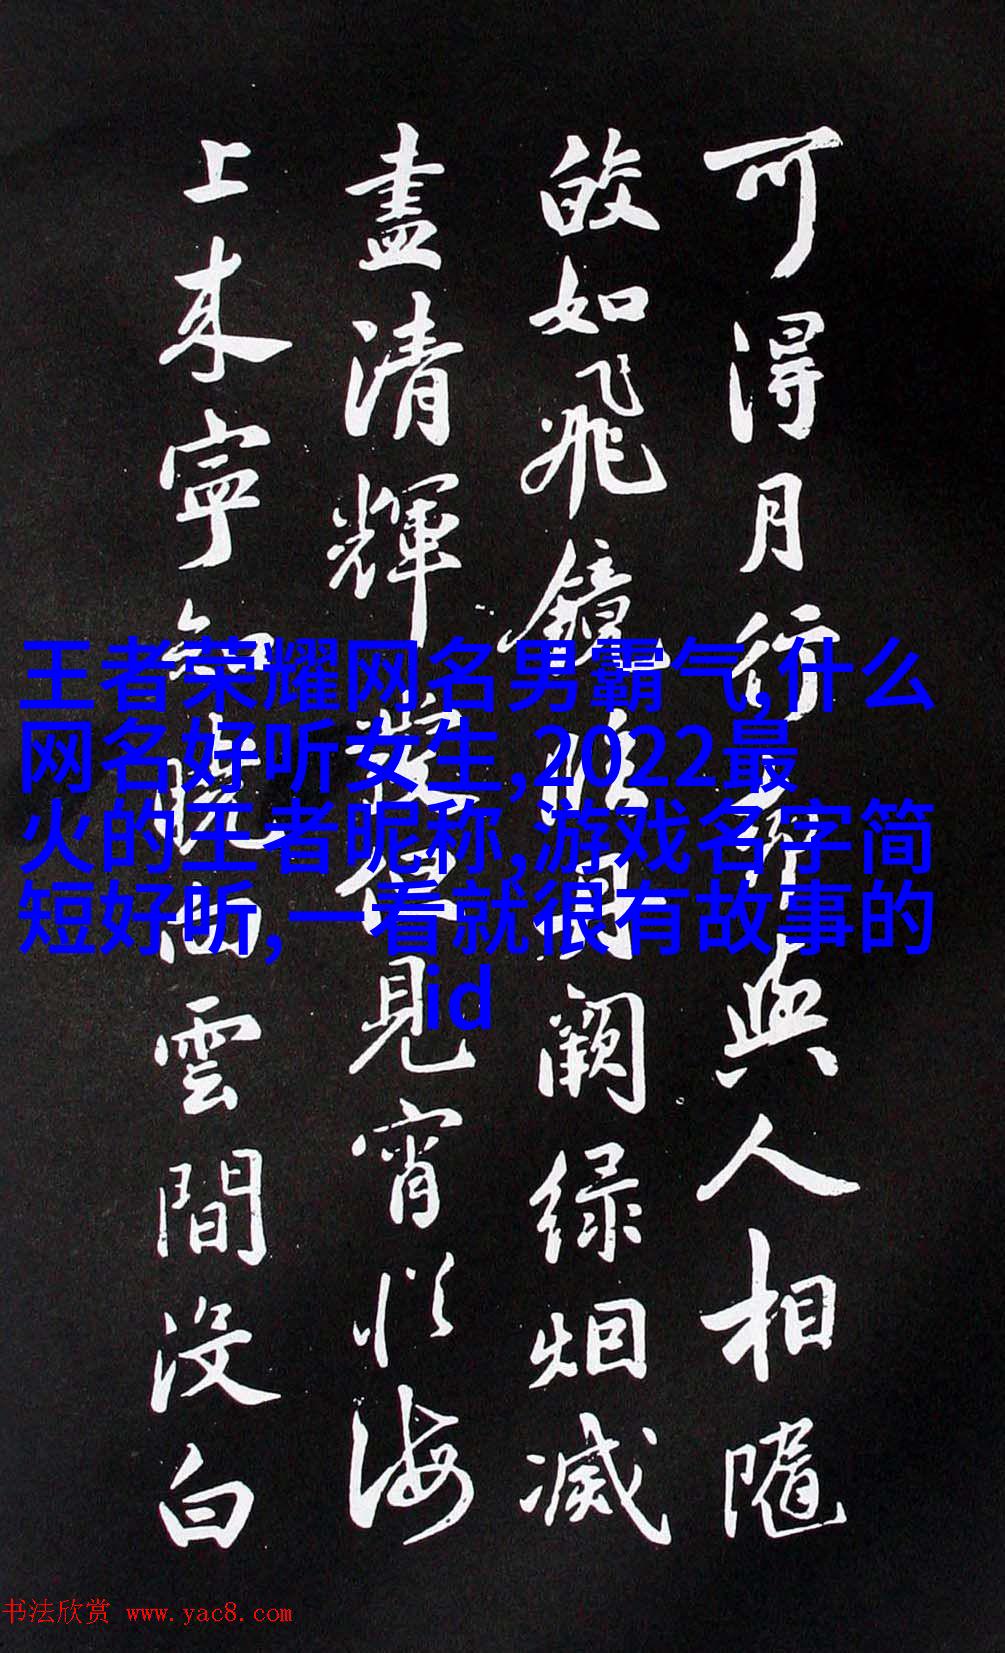 可得月行却與人相隨
皎如飛鏡臨丹闕綠烟滅
盡清輝發但見宵從海
上来寧知曉向雲間沒白
王者荣耀网名男霸气,什么
网名好听女生,2022最
火的王者昵称,游戏名字简
短好听,一看就很有故事的
id
书法欣赏 www.yac8.com